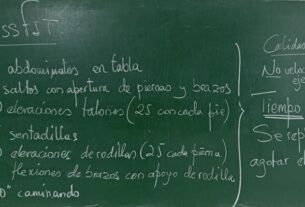 abdominales en tabla
saltos con apertura de piernas y brazos
elevaciones talones (25 con cada pie)
sentadillas
elevaciones de rodillas (25 cada pierna)
flexiones de brazos con apoyo de rodilla
caminando
Calidad
No velo
eje
Tiempo
Se rep
agotar el